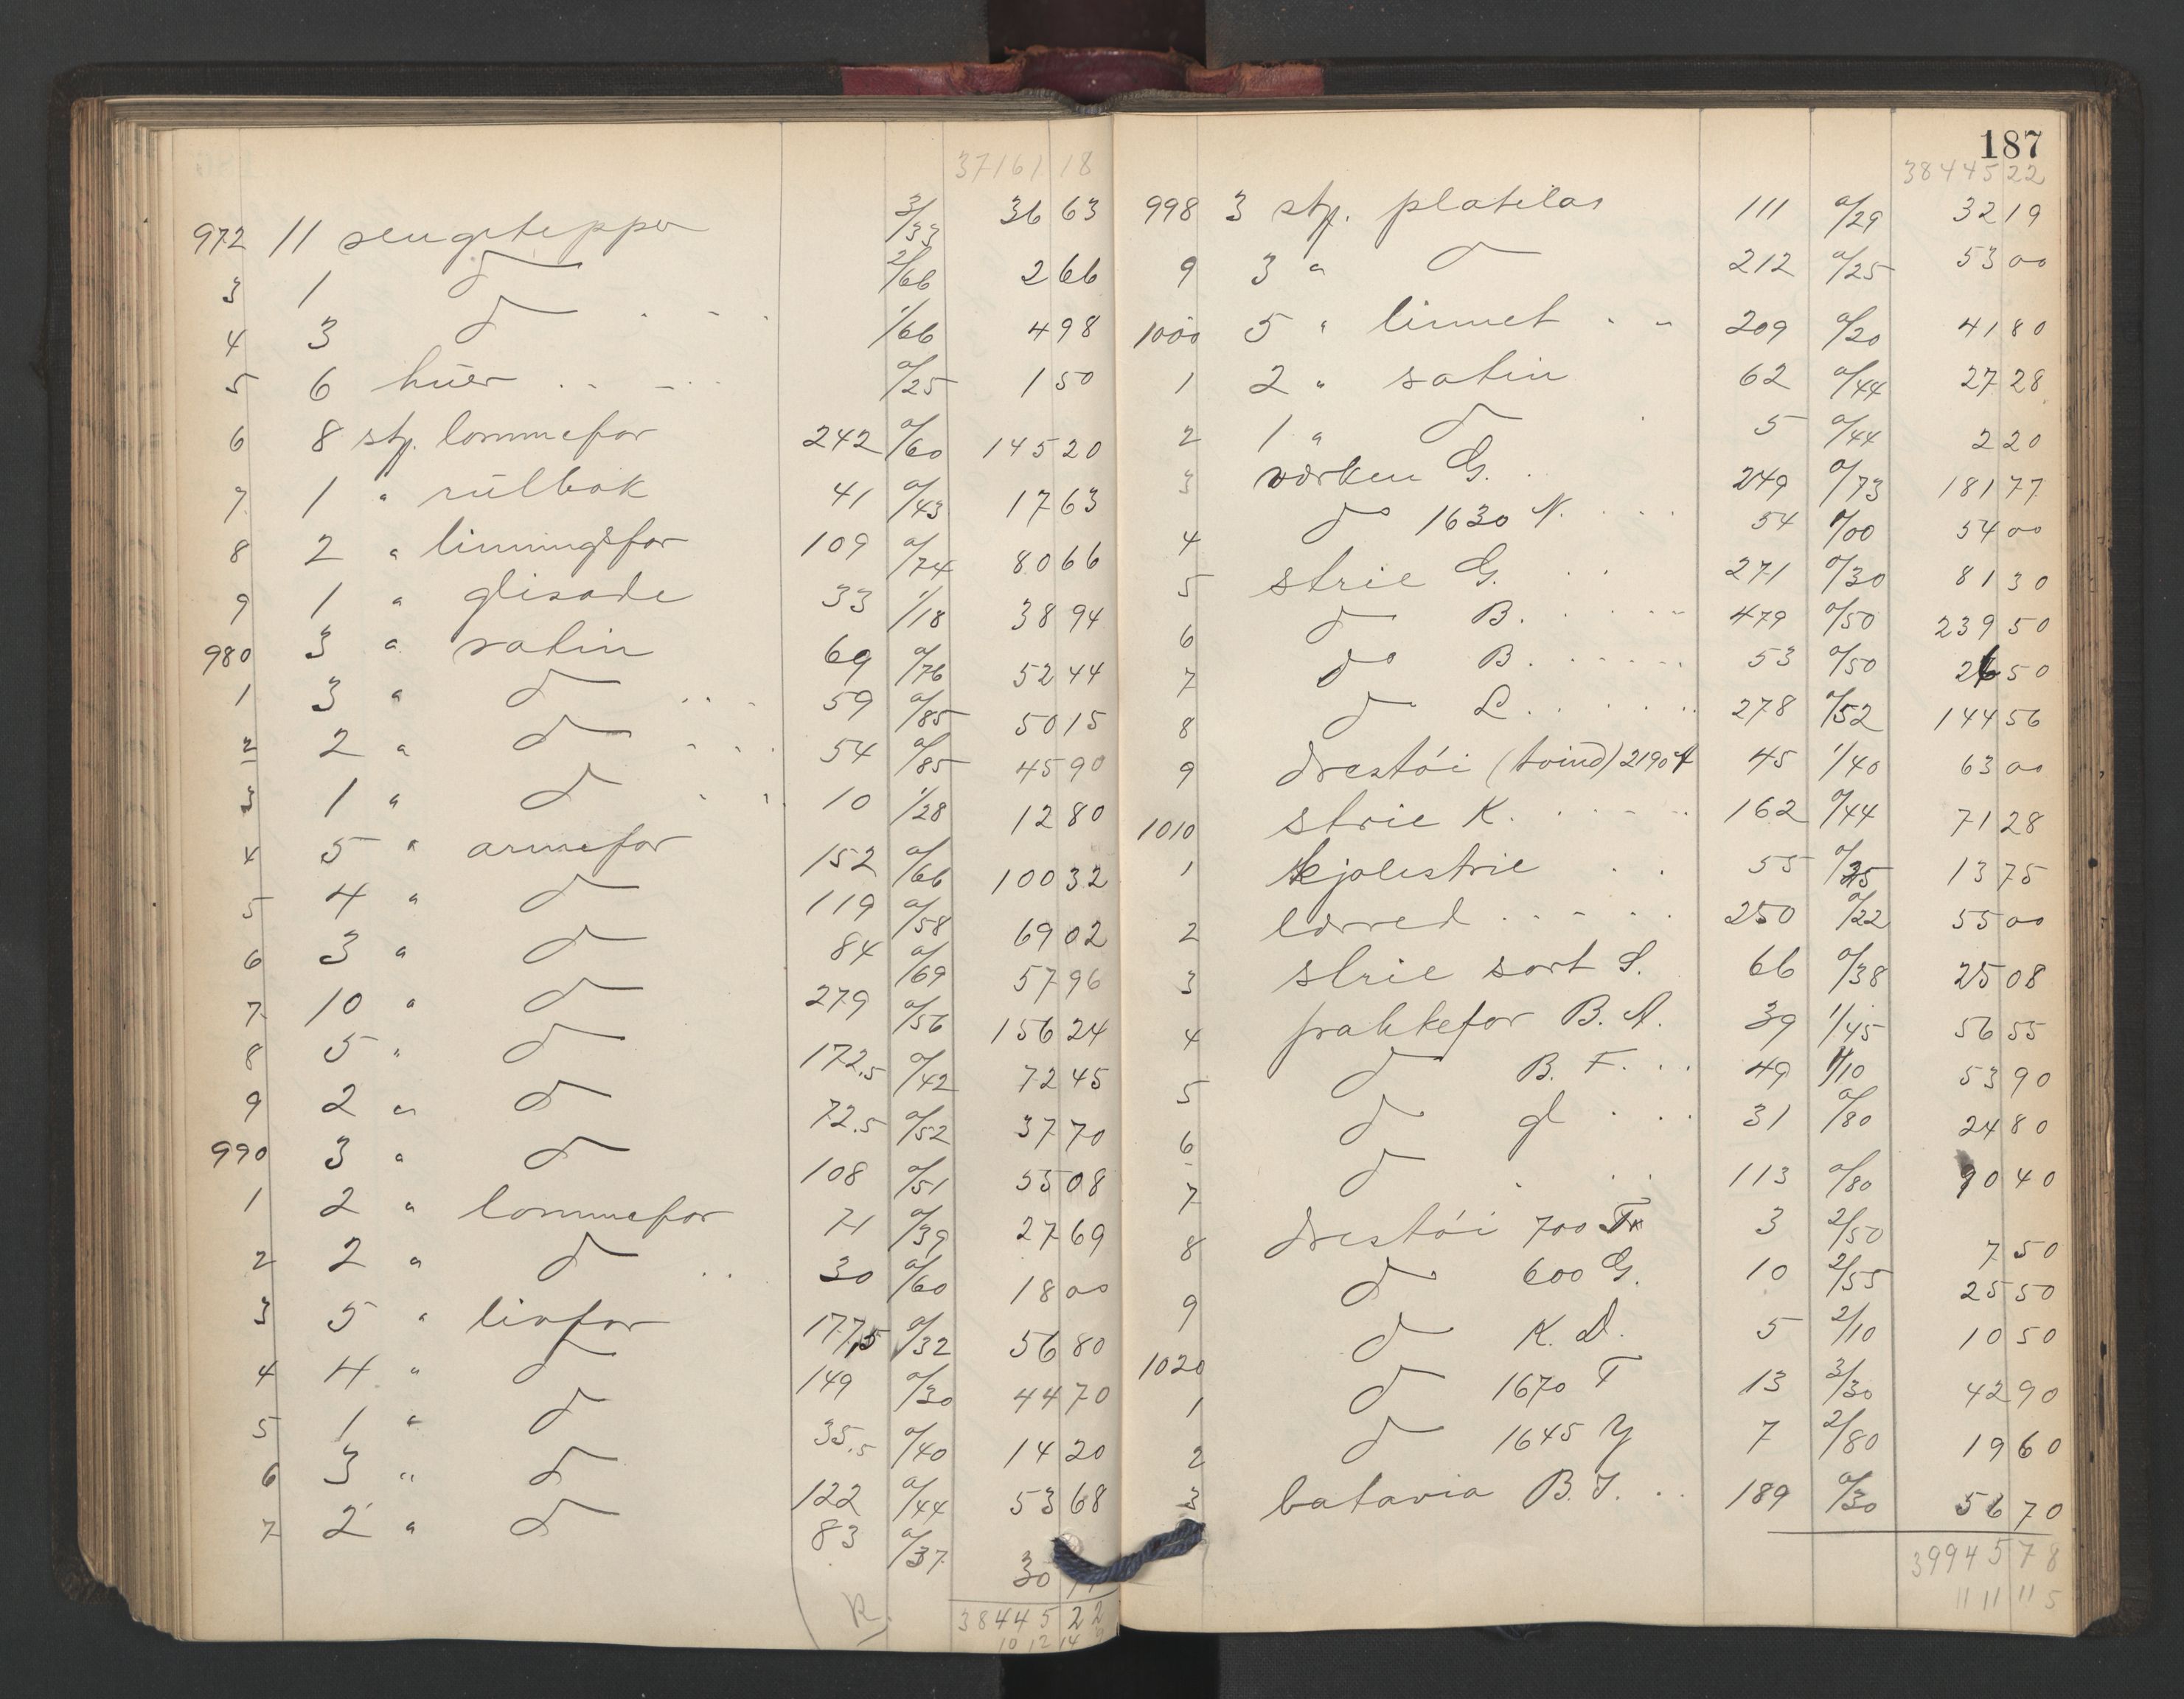 37161 18
972 11 sengetepper 3/33 36 63
3 1 do 2/66 2 66
4 3 do 1/66 4 98
5 6 huer 0/25 1 50
6 8 stp. lommefor 242 0/60 145 20
7 1 " rulbak 41 0/43 17 63
8 2 " linningsfor 109 0/74 80 66
9 1 " glisade 33 1/18 38 94
980 3 " satin 69 0/76 52 44
1 3 " do 59 0/85 50 15
2 2 " do 54 0/85 45 90
3 1 " do 10 1/28 12 80
4 5 " armefor 152 0/66 100 32
5 4 " do 119 0/58 69 02
6 3 " do 84 0/69 57 96
7 10 " do 279 0/56 156 24
8 5 " do 172.5 0/42 72 45
9 2 " do 72.5 0/52 37 70
990 3 " do 108 0/51 55 08
1 2 " lommefor 71 0/39 27 69
2 2 " do 30 0/60 18 00
3 5 " livfor 177,5 0/32 56 80
4 4 " do 149 0/30 44 70
5 1 " do 35.5 0/40 14 20
6 3 " do 122 0/44 53 68
7 2 " do 83 0/37 30
R. 38445 22
10 12 14
187
38445 22
998 3 stp. platilas 111 0/29 32 19
9 3 " do 212 0/25 53 00
1000 5 " linnet 209 0/20 41 80
1 2 " satin 62 0/44 27 28
2 1 " do 5 0/44 2 20
3 værken G. 249 0/73 181 77
4 do 1630 N. 54 1/00 54 00
5 strie G. 271 0/30 81 30
6 do B. 479 0/50 239 50
7 do B. 53 0/50 26 50
8 do L. 278 0/52 144 56
9 drestöi (tvind) 2190 45 1/40 63 00
1010 strie K. 162 0/44 71 28
1 kjolestrie 55 0/25 13 75
2 lærred 250 0/22 55 00
3 strie sort S. 66 0/38 25 08
4 frakkefor B. A. 39 1/45 56 55
5 do B. F. 49 1/10 53 90
6 do gl 31 0/80 24 80
7 do 113 0/80 90 40
8 drestöi 700 3 2/50 7 50
9 do 600 G. 10 2/55 25 50
1020 do K. D. 5 2/10 10 50
1 do 1670 T 13 3/30 42 90
2 do 1645 Y 7 2/80 19 60
3 batavia B. J. 189 0/30 56 70
39945 78
11 11 11 5